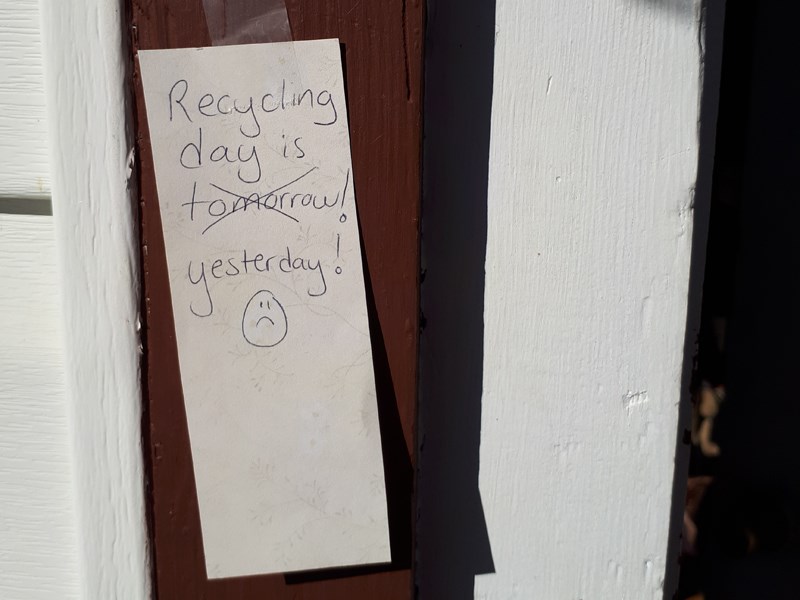 Recycling
day is
tomorrow!
yesterday!